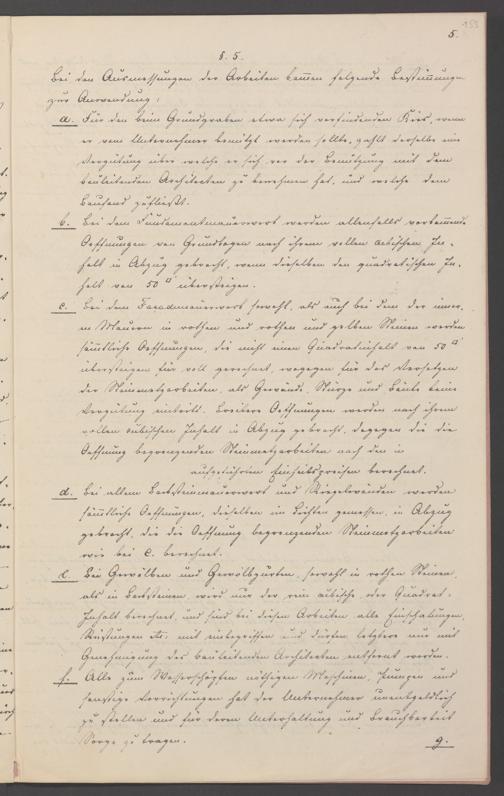 153
5.
§. 5.
Bei den Ausmessungen der Arbeiten kommen folgende Bestimmungen
zur Anwendung:
a. Für den beim Grundgraben etwa sich vorfindenden Kies, wenn
er vom Unternehmer benützt werden sollte, zahlt derselbe eine
Vergütung über welche er sich vor der Benützung mit dem
bauleitenden Architekten zu benehmen hat, und welche dem
Baufond zufließt.
b. Bei dem Fundamentmauerwerk werden allenfalls vorkommende
Oeffnungen von Grundbogen nach ihrem vollen cubischen In-
halt in Abzug gebracht, wenn dieselben den quadratischen In-
halt von 50 □' übersteigen.
c. Bei dem Facademauerwerk sowohl, als auch bei dem der inner-
n Mauern in rothen und rothen und gelben Steinen werden
sämtliche Oeffnungen, die nicht einen Quadratinhalt von 50 □'
übersteigen für voll gerechnet, wogegen für das Versetzen
der Steinmetzarbeiten, als Gewänd, Stürze und Bänke keine
Vergütung eintritt. Breitere Oeffnungen werden nach ihrem
vollen cubischen Inhalt in Abzug gebracht, dagegen die die
Oeffnung begrenzenden Steinmetzarbeiten nach den in
aufgeführten Einheitspreisen berechnet.
d. Bei allem Backsteinmauerwerk und Riegelwänden werden
sämtliche Oeffnungen, dieselben im Lichten gemessen, in Abzug
gebracht, die die Oeffnung begrenzenden Steinmetzarbeiten
wie bei c. berechnet.
e. Bei Gewölben und Gewölbgurten, sowohl in rothen Steinen,
als in Backsteinen, wird nur der rein cubische oder Quadrat-
Inhalt berechnet, und sind bei diesen Arbeiten alle Einschalungen,
Rüstungen etc. mit einbegriffen und dürfen letztere nur mit
Genehmigung des bauleitenden Architekten entfernt werden.
f. Alle zum Wasserschöpfen nöthigen Maschinen, Pumpen und
sonstige Vorrichtungen hat der Unternehmer unentgeldlich
zu stellen und für deren Unterhaltung und Brauchbarkeit
Sorge zu tragen.
g.